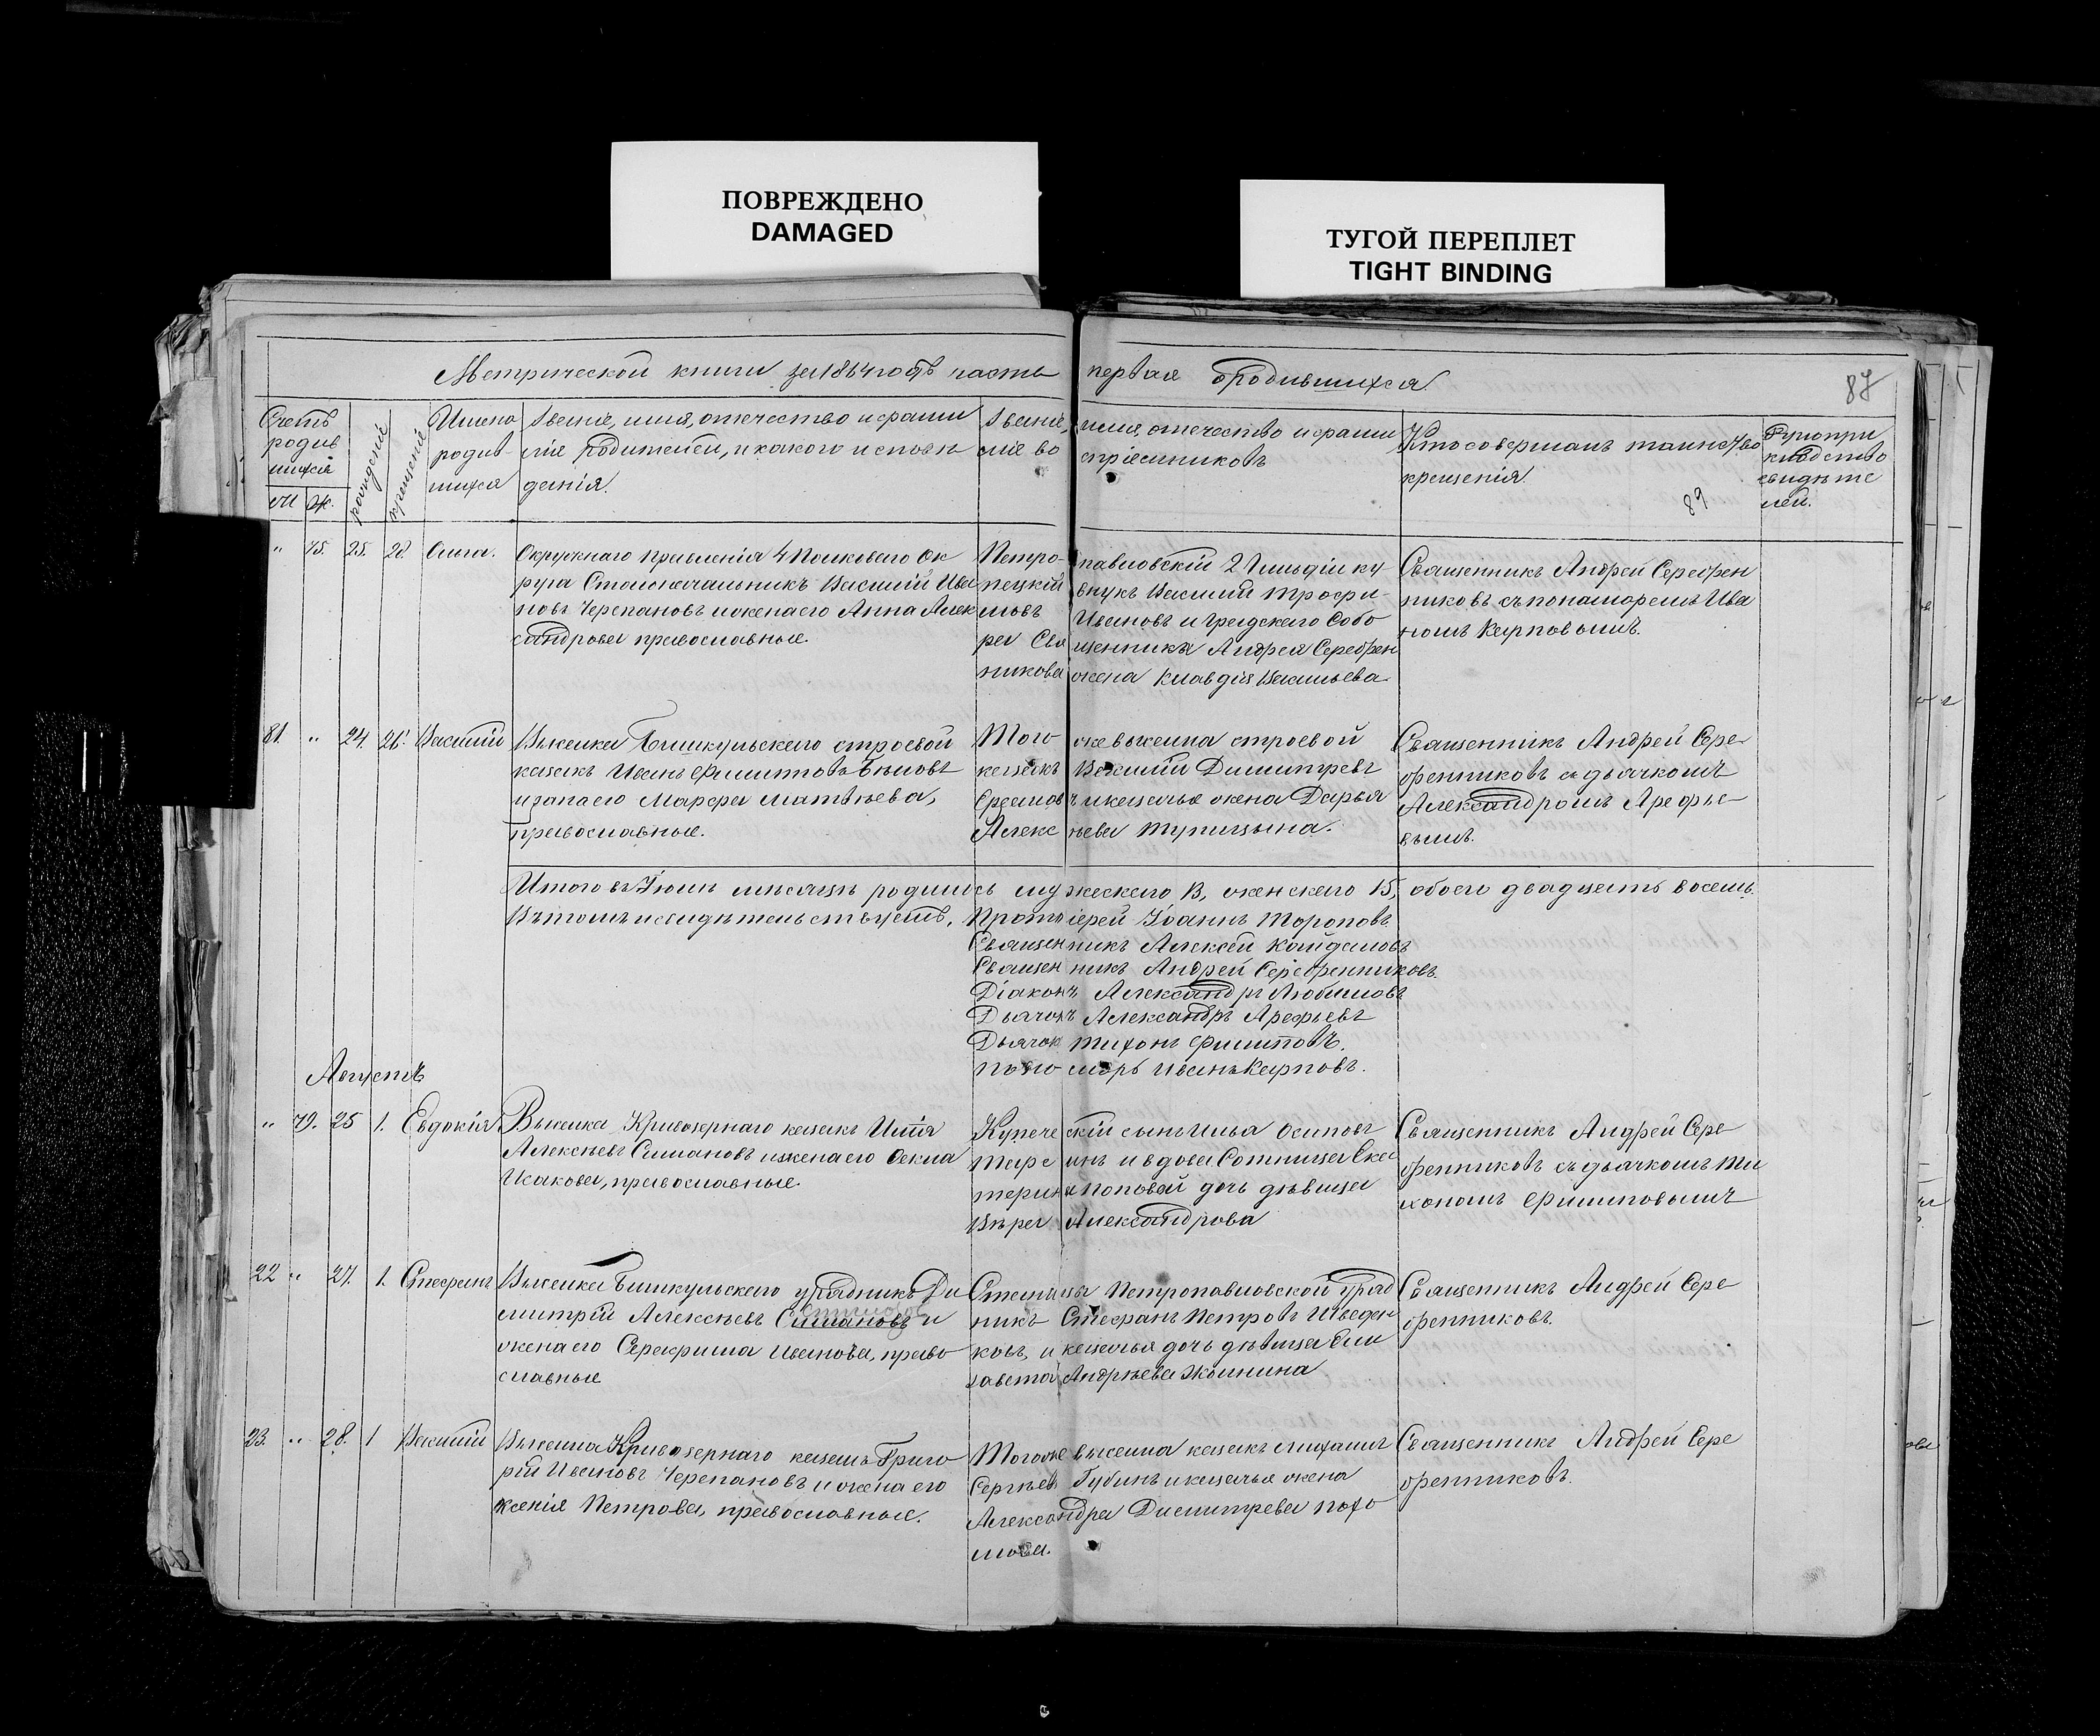 ПОВРЕЖДЕНО
DAMAGED
ТУГОЙ ПЕРЕПЛЕТ
TIGHT BINDING
Метрической книги за 1864 годъ часть первая о родившихся
87
Счетъ родив шихся
М Ж.
рожденія
крещенія
Имена родив- шихся
Званіе, имя, отечество и фами лія родителей, и какого исповѣ данія.
Званіе, имя, отечество и фами лія воспріемниковъ
Кто совершалъ таинство крещенія.
89
Рукопри кладство свидѣте лей.
" 75. 25. 28. Ольга.
Окружнаго правленія 4 Полковаго Ок
руга Столоначальникъ Василій Ива
новъ Черепановъ и жена его Анна Алек
сандрова православные.
Петропавловскій 2 Гильдіи ку
пецкій внукъ Василій Трофи-
мовъ Ивановъ и Градскаго Собо
ра Священника Андрея Серебрен
никова жена Клавдія Васильева
Священникъ Андрей Серебрен
никовъ съ пономаремъ Ива
номъ Карповымъ.
81. " 24. 26. Василій
Выселка Бишкульскаго строевой
казакъ Иванъ Филиповъ Бѣловъ
и жена его Марфа Матвѣева,
православные.
Того же выселка строевой
казакъ Василій Димитревъ
и казачья жена Дарья
Алексѣева Тупицына.
Священникъ Андрей Сере-
бренниковъ съ дьячкомъ
Александромъ Арефье-
вымъ.
Итого въ Іюлѣ мѣсяцѣ родились мужескаго 13, женскаго 15, обоего двадцать восемь.
Въ томъ и свидѣтельствуетъ, Протоіерей Іоаннъ Тороповъ
Священникъ Алексѣй Кайдаловъ
Священникъ Андрей Серебренниковъ.
Діаконъ Александръ Любимовъ
Дьячокъ Александръ Арефьевъ
Дьячок Тихонъ Филиповъ.
Пономарь Иванъ Карповъ.
Августъ
" 79. 25 1. Евдокія
Выселка Кривозернаго казакъ Илія
Алексѣевъ Симановъ и жена его Фекла
Исакова, православные.
Купеческій сынъ Илья Осиповъ
и вдова Сотница Ека
терина Поповой дочь дѣвица
Вѣра Александрова
Священникъ Андрей Сере-
бренниковъ съ дьячкомъ Ти
хономъ Филиповымъ
22 " 27. 1. Стефанъ
Выселка Бишкульскаго урядникъ Ди
митрій Алексѣевъ Симановъ и
жена его Серафима Иванова, право
славные
Станицы Петропавловской уряд
никъ Стефанъ Петровъ Шведен
ковъ, и казачья дочь дѣвица Ели
завета Андрѣева
Священникъ Андрей Сере-
бренниковъ.
23. " 28. 1 Василій
Выселка Кривозернаго казакъ Григо
рій Ивановъ Черепановъ и жена его
Ксенія Петрова, православные.
Тогоже выселка казакъ Михаилъ
Сергѣевъ Губинъ и казачья жена
Александра Димитрева Пахо
мова.
Священникъ Андрей Сере
бренниковъ.